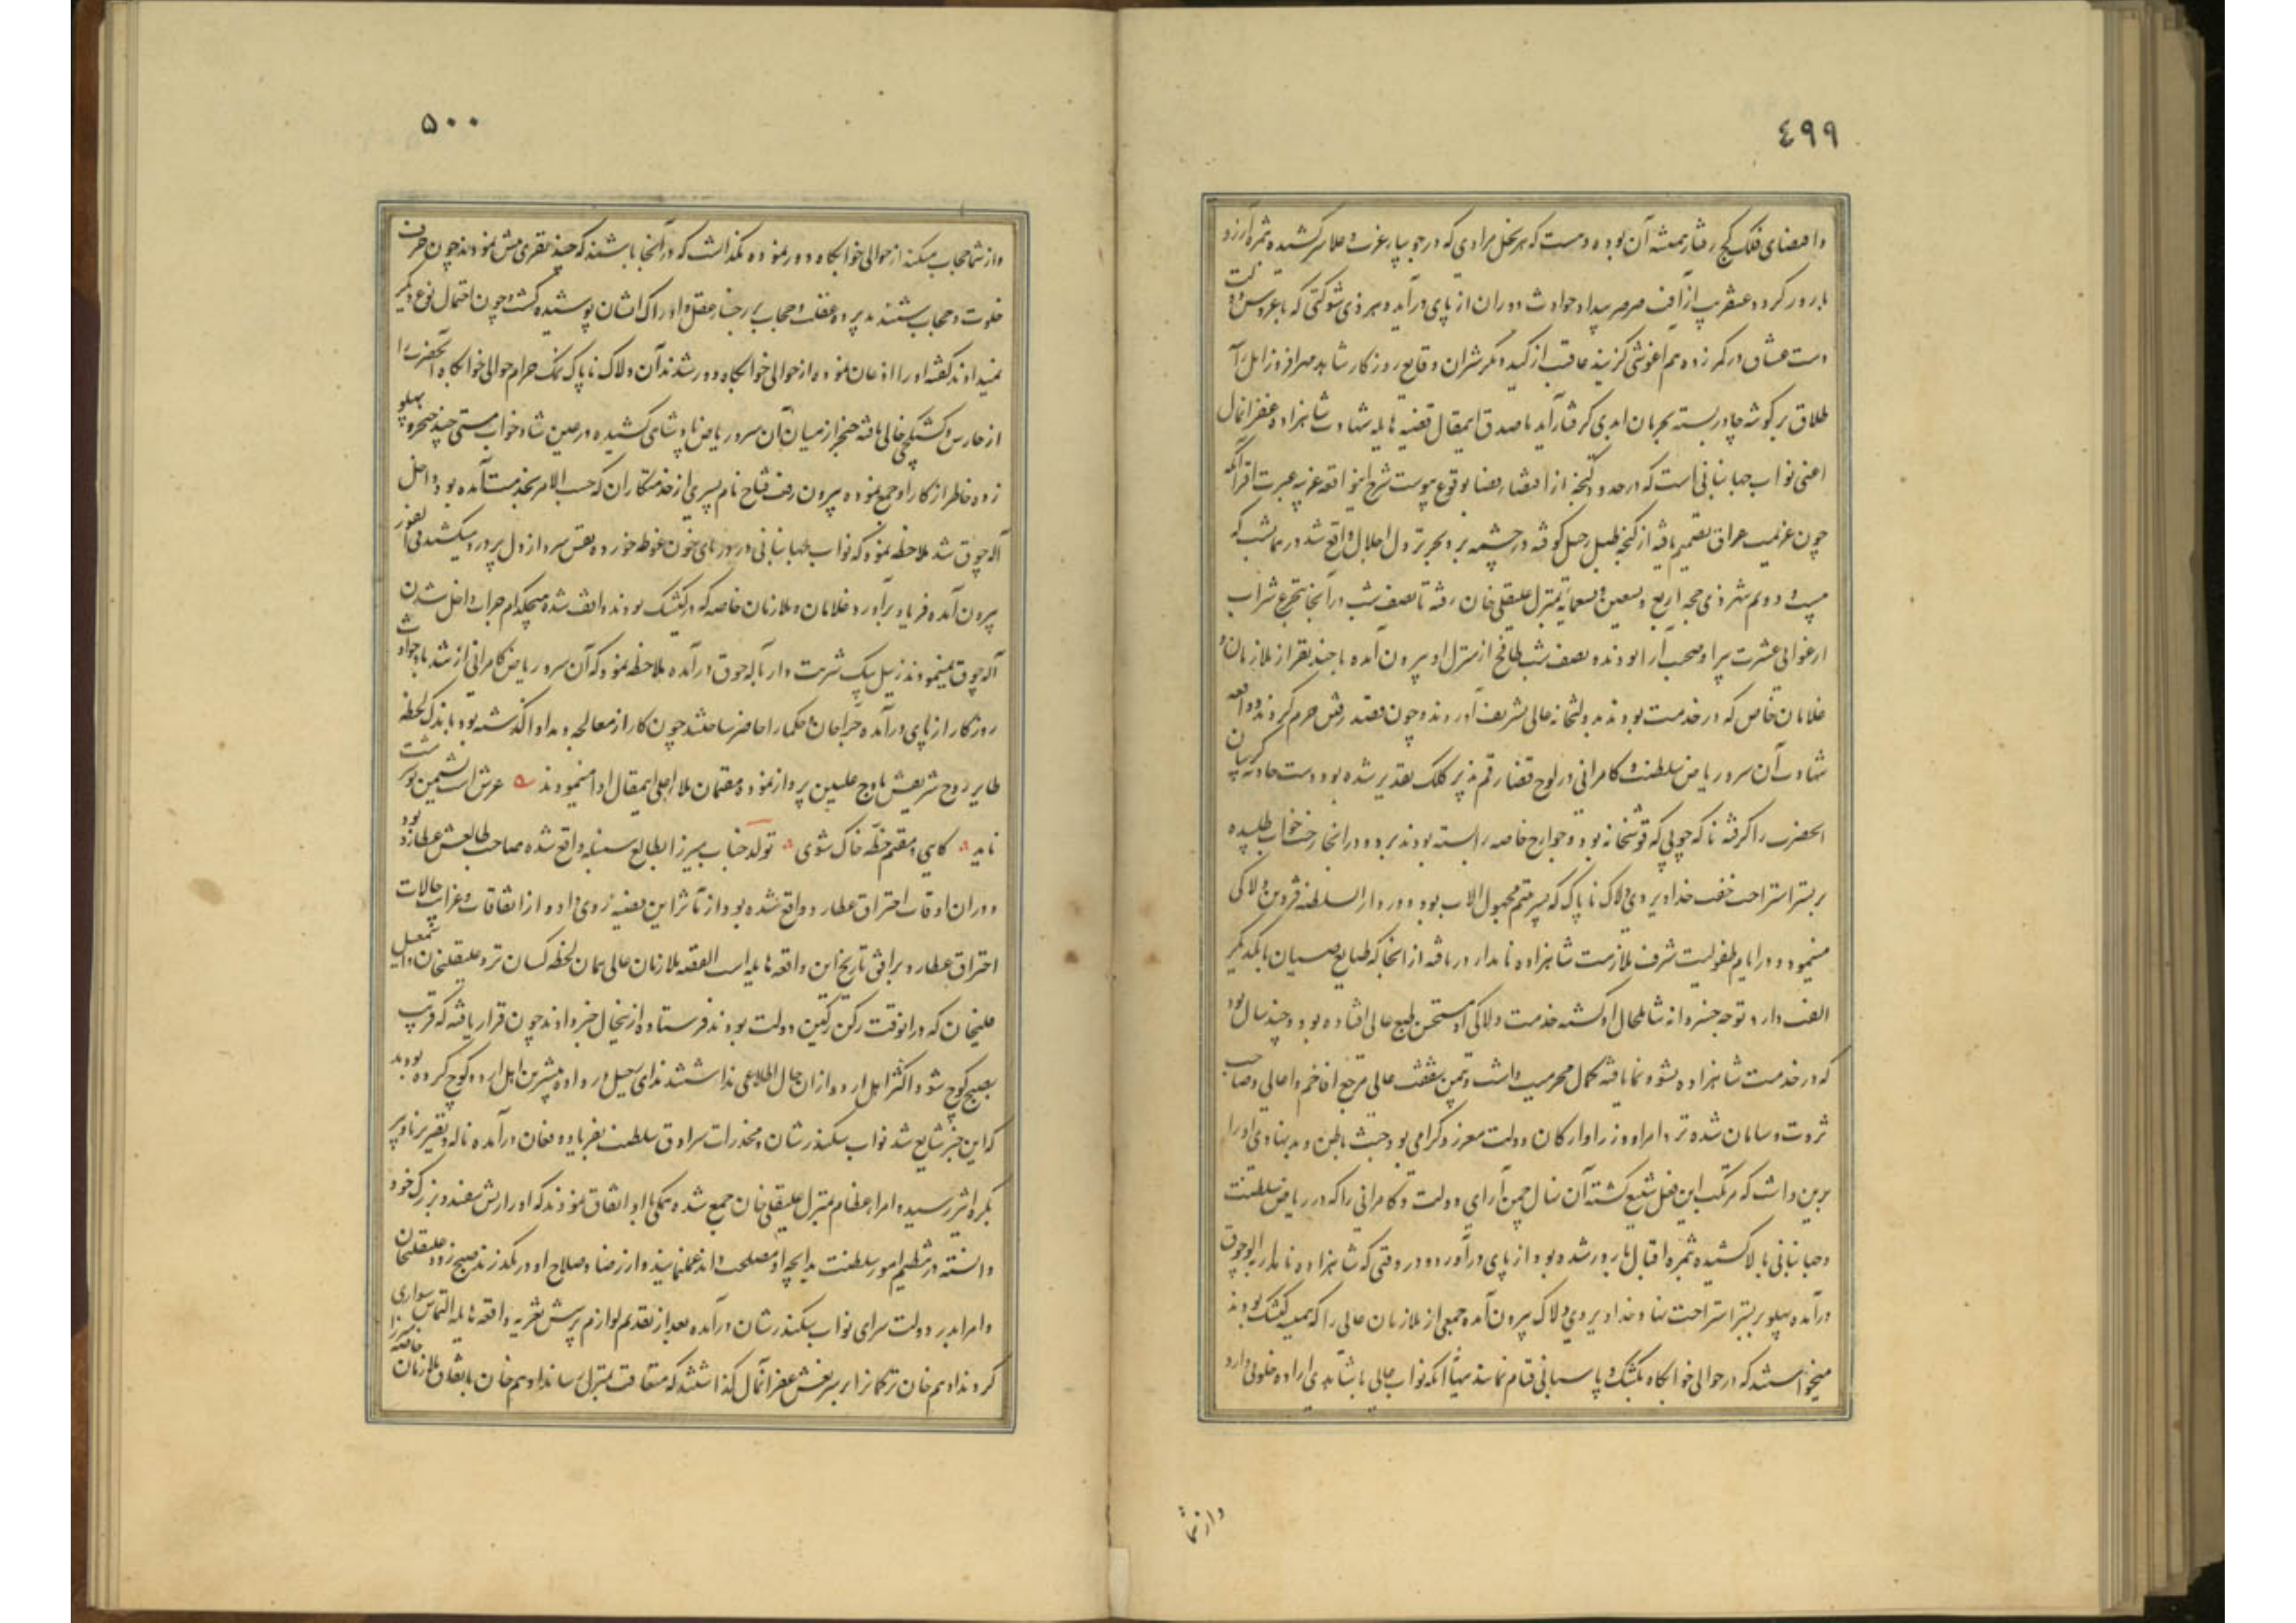 ٤٩٩
و اقتضای فلک کج رفتار همیشه آن بوده و هست که هر نخل مرادی که در جویبار عزت و علا سر کشیده ثمره آرزو
بارور گردد عنقریب از آفت صرصر بیداد حوادث دوران از پای درآید و هر ذی شوکتی که با عروس دولت
دست عشاق در کمر زده هم آغوشی گزیند عاقبت از کید و مکر وقایع روزگار شاهد مهرافروز
طلاق بر گوشه چادر بسته بحرمان ابدی گرفتار آید مصدق این مقال قضیه هایله شهادت شاهزاده غفران مآل
اعنی نواب جهانبانی است که در حدود گنجه از اقتضاء قضا بوقوع پیوست شرح این واقعه غریبه عبرت افزا آنکه
چون عزیمت عراق تصمیم یافته از گنجه طبل رحیل کوفته در چشمه نزول اجلال واقع شد در همان شب که
بیست و دویم شهر ذی حجه اربع و تسعین و تسعمایه بمنزل علیقلی خان رفته تا نصف شب در آنجا بتجرع شراب
ارغوانی عشرت پیرا و صحبت آرا بودند و نصف شب از منزل او بیرون آمده با چند نفر از ملازمان و
غلامان خاص که در خدمت بودند بدولتخانه عالی تشریف آوردند و چون قصد رفتن حرم کردند واقعه
شهادت آن سرو ریاض سلطنت و کامرانی در لوح قضا رقم پذیر کلک تقدیر شده بود دست حادثه گریبان
آنحضرت را گرفته تا که چوبی که قوشخانه بود و جوارح خاصه را بسته بودند برد و در آنجا رخت خواب طلبیده
بر بستر استراحت خفت خداویردی دلاک ناپاک که پسر خفتم مجهول الاب بود و در دار السلطنه قزوین دلاکی
مینمود و در ایام طفولیت شرف ملازمت شاهزاده نامدار دریافته از آنجا که طبایع صبیان با یکدیگر
الفت دارد توجه خسروانه شامل حال او گشته خدمت دلاکی او مستحسن طبع عالی افتاده بود و چند سال بود
که در خدمت شاهزاده نشو و نما یافته کمال محرمیت داشت و بیمن شفقت عالی مرجع افاخم و اعالی و صاحب
ثروت و سامان شده نزد امرا و وزرا و ارکان دولت معزز و گرامی بود خبث باطن و بدنهادی او را
برین داشت که مرتکب این فعل شنیع گشته آن نهال چمن آرای دولت و کامرانی را که در ریاض سلطنت
و جهانبانی بالا کشیده بثمره اقبال بارور شده بود از پای درآورد در وقتی که شاهزاده نامدار به آلاچوق
درآمده پهلو بر بستر استراحت نهاد خداویردی دلاک بیرون آمده جمعی از ملازمان عالی را که همیشه کشیک بودند
میخواستند که در حوالی خوابگاه بکشیک و پاسبانی قیام نمایند ببهانه آنکه نواب عالی با شاهدی اراده خلوتی دارد
و از شما
٥٠٠
و از شما حجاب میکند از حوالی خوابگاه دور نموده نگذاشت که در آنجا باشند که چند نفری منش نمودند چون حرف
خلوت و حجاب شنیدند پرده غفلت و حجاب بر رخسار عقل و ادراک ایشان پوشیده گشت و چون احتمال نوع دیگر
نمیدادند گفته او را اذعان نموده از حوالی خوابگاه دور شدند آن دلاک ناپاک نمک حرام حوالی خوابگاه آنحضرت را
از حارس و کشیکچی خالی یافته خنجر از میان آن سرو ریاض پادشاهی کشیده در عین شاد خواب مستی چند خنجر بر پهلو
زده خاطر از کار او جمع نموده بیرون رفت فتاح نام پسری از خدمتکاران که حسب الامر بخدمت آمده بود داخل
آلاچوق شد ملاحظه نمود که نواب جهانبانی در دریای خون غوطه خورده نفس سرد از دل پر درد میکشد فی الفور
بیرون آمده فریاد برآورد غلامان و ملازمان خاصه که در کشیک بودند واقف شده هیچکدام جرات داخل شدن
آلاچوق نمینمودند زنیل بیک شربت دار بآلاچوق درآمده ملاحظه نمود که آن سرو ریاض کامرانی از تندباد حوادث
روزگار از پای درآمده جراحان و حکما را حاضر ساختند چون کار از معالجه و مداوا گذشته بود باندک لحظه
طایر روح شریفش باوج علیین پرواز نموده مقیمان ملاء اعلی این مقال ادا مینمودند عرش است نشیمن تو شرمت
ناید کایی و مقیم خطه خاک شوی تولد جناب میرزا بطالع سنبله واقع شده صاحب طالعش عطارد بود
و در آن اوقات احتراق عطارد واقع شده بود از تاثر این قضیه روی داد و از اتفاقات و غرایب حالات
احتراق عطارد برأفتی تاریخ این واقعه هایله است القصه ملازمان عالی همان لحظه کسان نزد علیقلیخان و اسمعیل
قلیخان که در آنوقت رکن رکین دولت بودند فرستاده ازین حال خبر دادند چون قرار یافته که قریب
بصبح کوچ شود اکثر اهل اردو از آن حال اطلاعی نداشتند ندای رحیل در داده بیشترین اهل اردو کوچ کرده بودند
که این خبر شایع شد نواب سکندر شان و مخدرات سرادق سلطنت بفریاد و فغان درآمده ناله و نفیر برنا و پیر
بکره اثیر رسید و امراء عظام بمنزل علیقلی خان جمع شده همگی با او اتفاق نمودند که او را ریش سفید و بزرگ خود
دانسته در تنظیم امور سلطنت بدانچه او مصلحت داند عمل نمایند و از رضا و صلاح او در نگذرند صبح زود علیقلیخان
و امرا بدر دولت سرای نواب سکندر شان درآمده بعد از تقدیم لوازم پرسش تعزیه واقعه هایله التماس سواری
کردند ادهم خان ترکمان را بر سر نعش غفران مآل گذاشتند که متعاقب بمنزل رساند ادهم خان باتفاق ملازمان خاصه